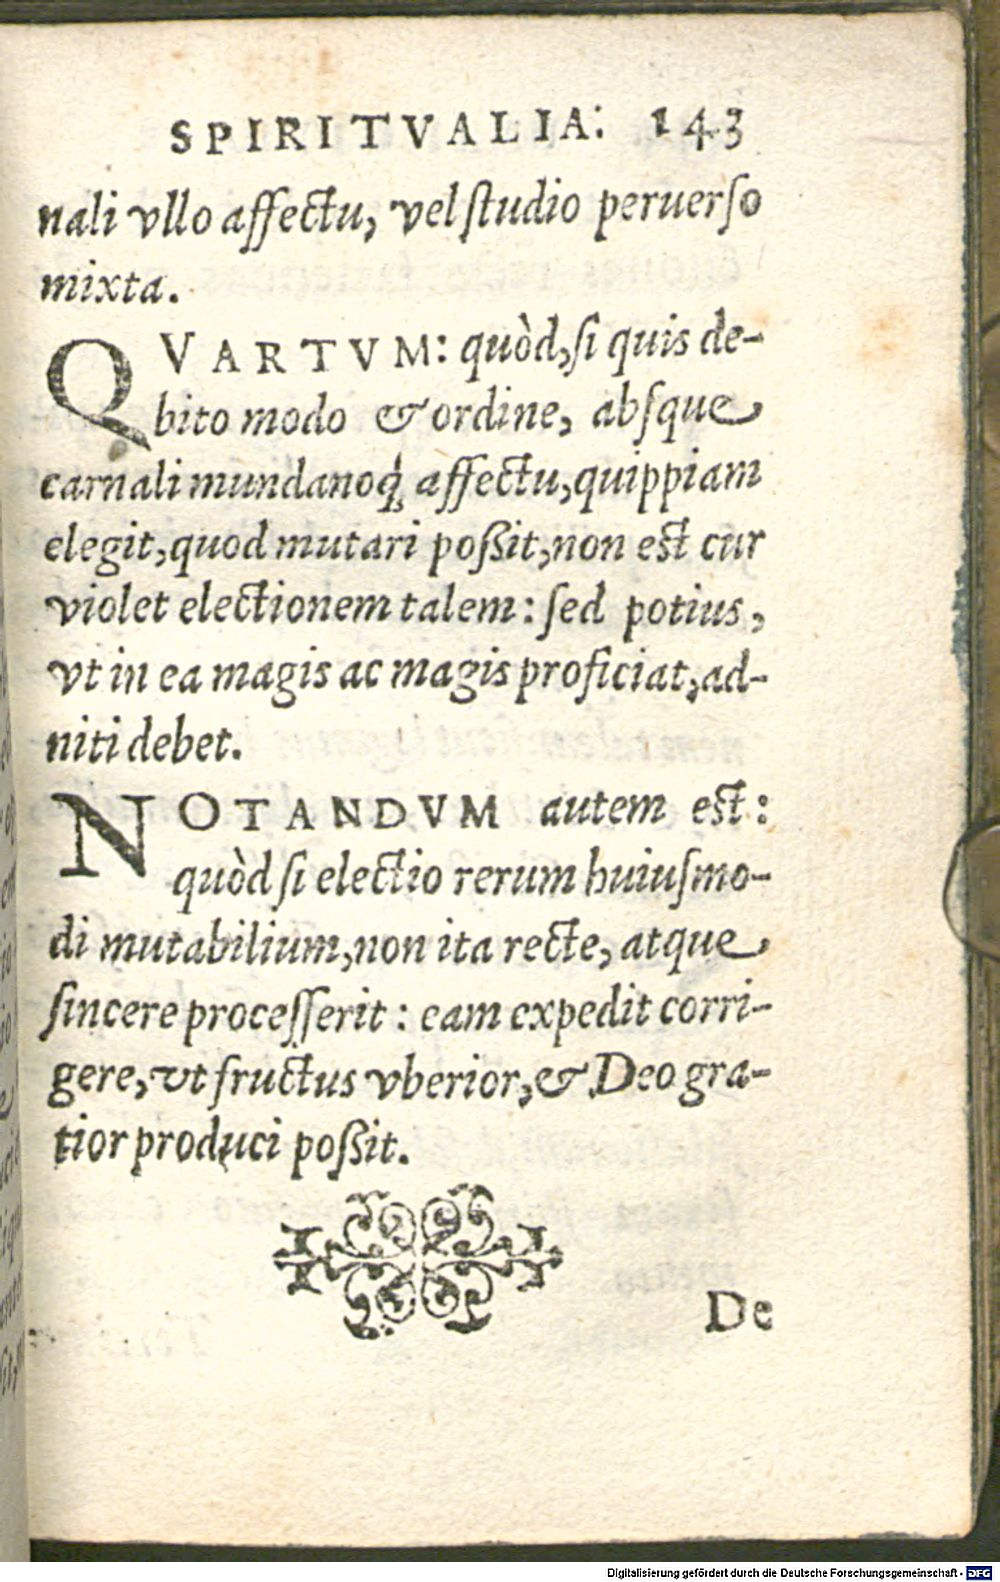 SPIRITVALIA: 143
nali vllo affectu, vel ſtudio peruerſo
mixta.
QVARTVM: quòd, ſi quis de-
bito modo & ordine, abſque
carnali mundanoq́; affectu, quippiam
elegit, quod mutari poßit, non est cur
violet electionem talem: ſed potius,
vt in ea magis ac magis proficiat, ad-
niti debet.
NOTANDVM autem est:
quòd ſi electio rerum huiuſmo-
di mutabilium, non ita recte, atque
ſincere proceſſerit: eam expedit corri-
gere, vt fructus vberior, & Deo gra-
tior produci poßit.
De
Digitalisierung gefördert durch die Deutsche Forschungsgemeinschaft - DFG